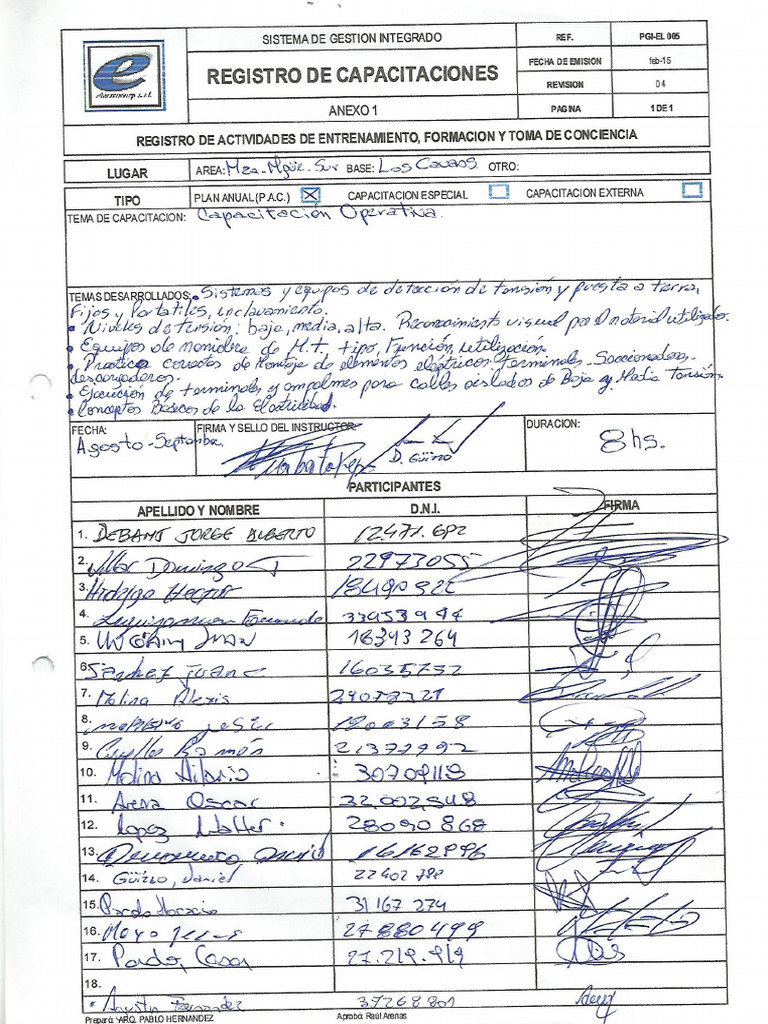 SISTEMA DE GESTION INTEGRADO
REF.
PGI-EL 005
REGISTRO DE CAPACITACIONES
FECHA DE EMISION
feb-15
REVISION
04
ANEXO 1
PAGINA
1 DE 1
REGISTRO DE ACTIVIDADES DE ENTRENAMIENTO, FORMACION Y TOMA DE CONCIENCIA
LUGAR
AREA: Mza-Mgüe-Sur BASE: Los Cavaos OTRO:
TIPO
PLAN ANUAL (P.A.C.)
CAPACITACION ESPECIAL
CAPACITACION EXTERNA
TEMA DE CAPACITACION: Capacitación Operativa.
TEMAS DESARROLLADOS: • Sistemas y equipos de detección de tensión y puesta a tierra,
Fijos y Portatiles, enclavamiento.
• Niveles de tensión: baja, media, alta. Reconocimiento visual por el material utilizado.
• Equipos de maniobra de M.T. tipo, Función, utilización.
• Practica correctas de montaje de elementos eléctricos. Terminales. Seccionadores
descargadores.
• Ejecución de terminales y empalmes para cables aislados de Baja y Media Tensión
• Conceptos Básicos de la Electricidad.
FECHA:
Agosto-Septiembre
FIRMA Y SELLO DEL INSTRUCTOR
D. Güizzo
DURACION:
8 hs.
PARTICIPANTES
APELLIDO Y NOMBRE
D.N.I.
FIRMA
1. DEBAMI JORGE ALBERTO 12.471.692
2. Domingo 22973055
3. Hidalgo Hector
4. Fernando
5. JUAN 18343264
6 Sanchez Juan 16035752
7. Molina Alexis
8.
9. Ramón 21372992
10. Molina Hilario 30709118
11. Arena Oscar 32.002.548
12. Lopez Walter. 28090868
13. 16162996
14. Güizzo, Daniel 22402798
15. Pardo Horacio 31167274
16. Moya 27880499
17. Pardo, Cesar 27.219.919
18.
• Agustin Fernandez 37268801
Preparó: ARQ. PABLO HERNANDEZ
Aprobó: Raúl Arenas